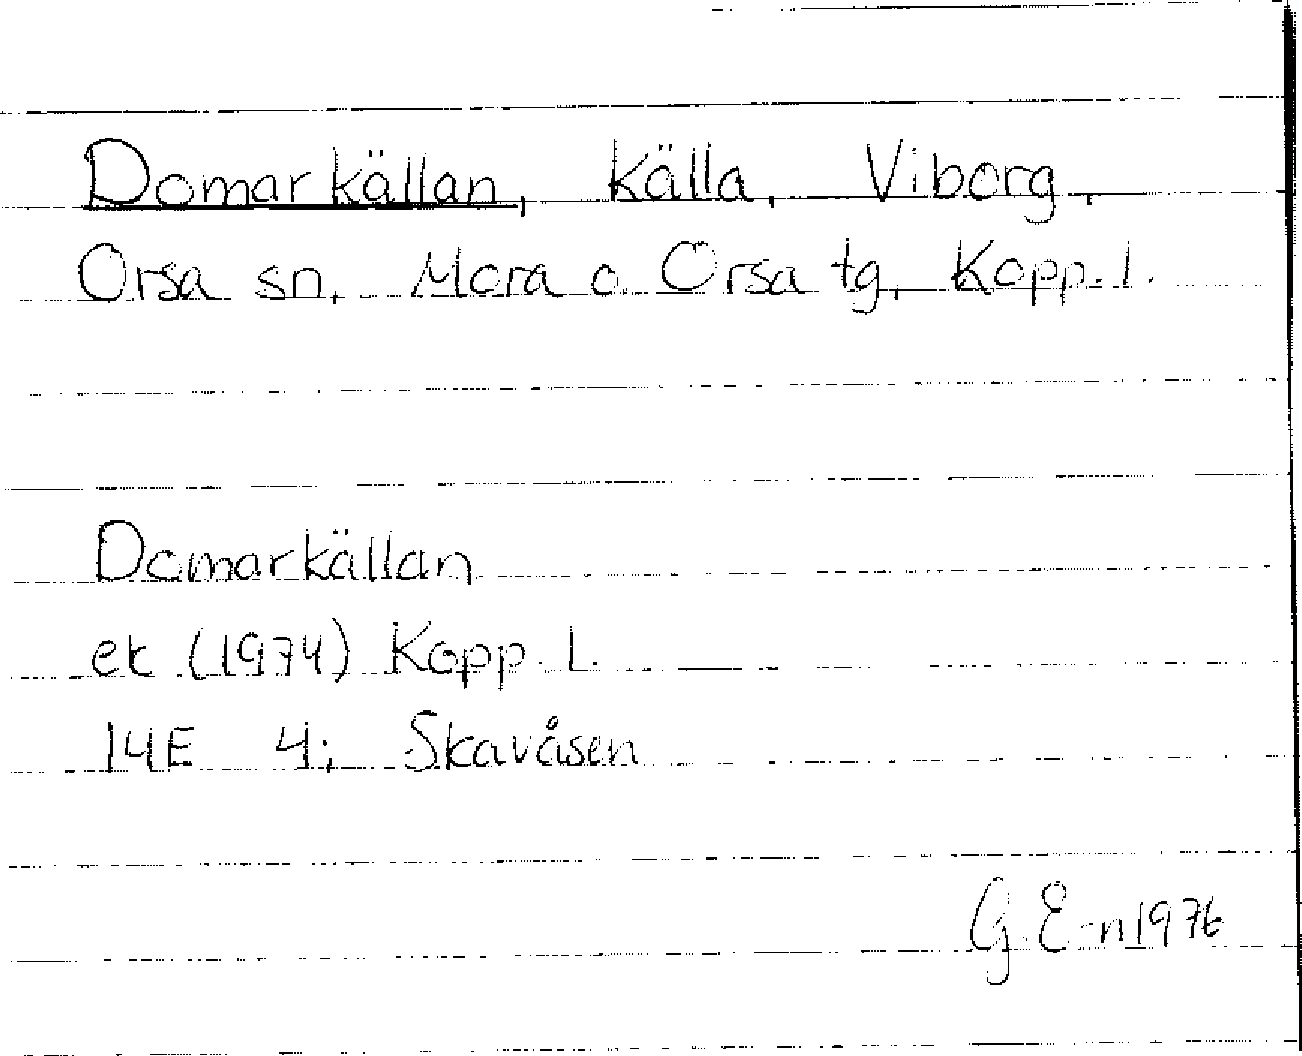 Domarkällan, källa, Viborg,
Orsa sn, Mora o Orsa tg, Kopp. l.
Domarkällan
ek (1974) Kopp. l.
14E 4i Skavåsen
G E-n 1976